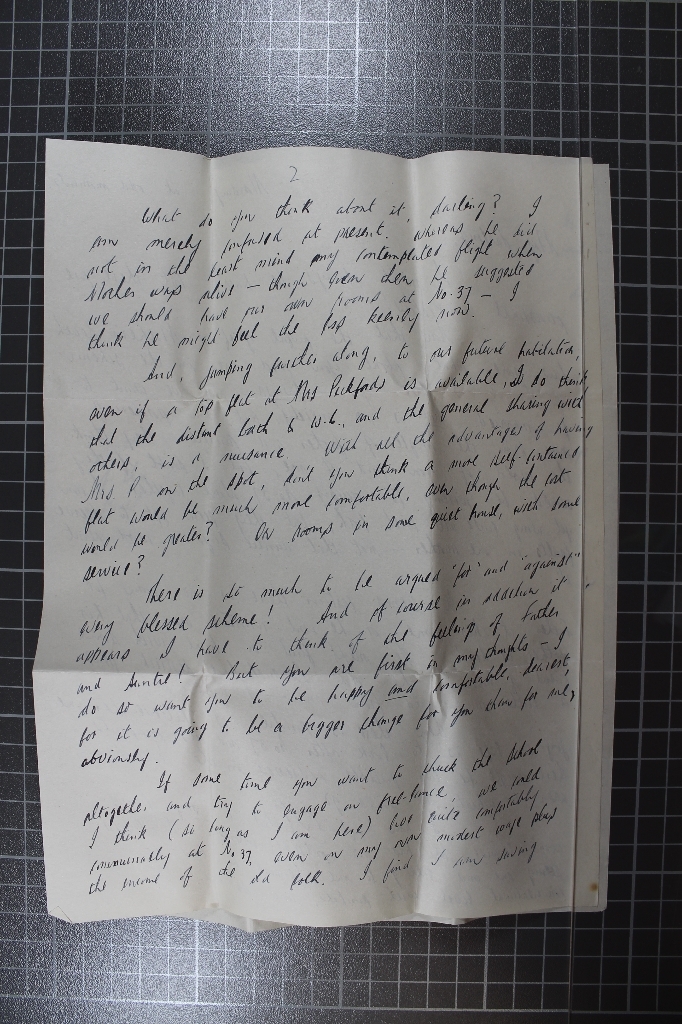 2
What do you think about it, darling? I
am merely confused at present. Whereas he did
not in the least mind my contemplated flight when
Mother was alive — though even then he suggested
we should have our own rooms at No. 37 — I
think he might feel the gap keenly now.
And, jumping further along, to our future habitation,
even if a top flat at Mrs Pickfords is available, I do think
that the distant bath & W.C., and the general sharing with
others, is a nuisance. With all the advantages of having
Mrs. P on the spot, don't you think a more self-contained
flat would be much more comfortable, even though the cost
would be greater? Or rooms in some quiet house, with some
service?
There is so much to be argued "for" and "against"
every blessed scheme! And of course in addition it
appears I have to think of the feelings of Father
and Auntie! But you are first in my thoughts — I
do so want you to be happy and comfortable, dearest,
for it is going to be a bigger change for you than for me,
obviously.
If some time you want to chuck the School
altogether and try to engage on free-lance, we could
I think (so long as I am here) live quite comfortably
communally at No 37, even on my own modest wage plus
the income of the old folk. I find I am saving